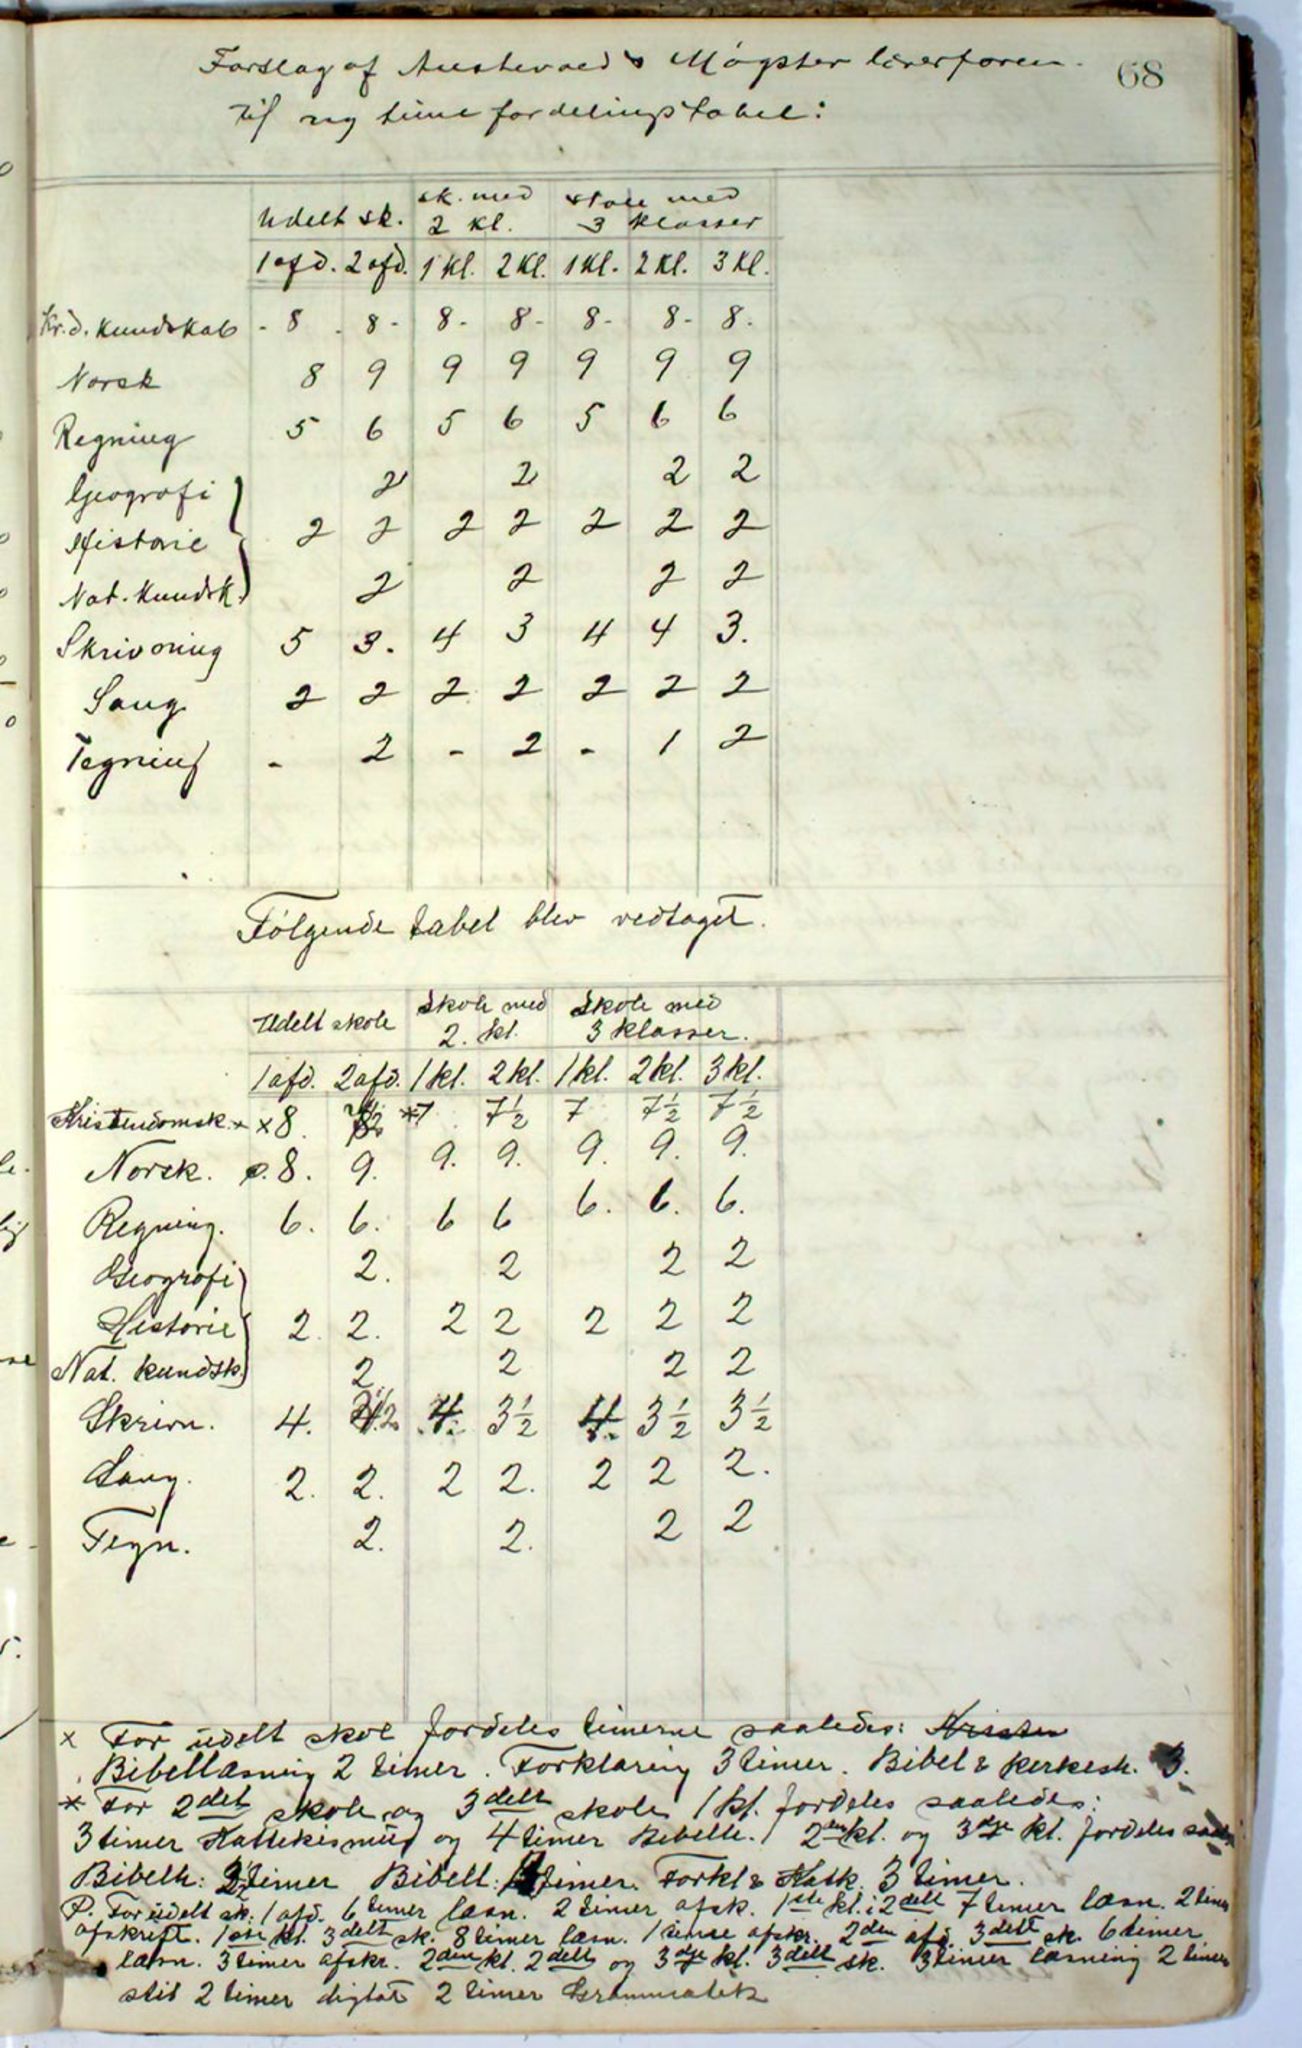 68
Forslag af Austevold & Møgster lærerforen.
til ny time fordelingstabel:
Udelt sk. sk. med 2 kl. skole med 3 klasser
1 afd. 2 afd. 1 Kl. 2 Kl. 1 Kl. 2 Kl. 3 Kl.
Kr.d. kundskab - 8 - 8 - 8 - 8 - 8 - 8 - 8.
Norsk 8 9 9 9 9 9 9
Regning 5 6 5 6 5 6 6
Geografi 2 2 2 2
Historie 2 2 2 2 2 2 2
Nat. Kundsk. 2 2 2 2
Skrivning 5 3. 4 3 4 4 3.
Sang 2 2 2 2 2 2 2
Tegning - 2 - 2 - 1 2
Følgende tabel blev vedtaget.
Udelt skole Skole med 2. kl. Skole med 3 klasser.
1 afd. 2 afd. 1 kl. 2 kl. 1 kl. 2 kl. 3 kl.
Kristendomsk. x x 8. *7 7½ 7 7½ 7½
Norsk. 8. 9. 9. 9. 9. 9. 9.
Regning. 6. 6. 6 6 6. 6. 6.
Geografi 2. 2 2 2
Historie 2. 2. 2 2 2 2 2
Nat. kundsk. 2 2 2 2
Skrivn. 4. 4. 3½ 4. 3½ 3½
Sang. 2. 2. 2 2. 2 2 2.
Tegn. 2. 2. 2 2
x For udelt skole fordeles timerne saaledes: Kristen
Bibellæsning 2 timer. Forklaring 3 timer. Bibel & kirkesh. 3.
* For 2delt skole og 3delt skole 1 kl. fordeles saaledes:
3 timer Kattekismus og 4 timer Bibelh. / 2den kl. og 3dje kl. fordeles
Bibelh: timer Bibell: timer. Forkl & Katk. 3 timer.
P. For udelt sk. 1 afd. 6 timer læsn. 2 timer afsk. 1ste kl. i 2delt 7 timer læsn. 2 timer
afskrift. 1ste kl. 3delt sk. 8 timer læsn. 1 time afskr. 2den afd. 3delt sk. 6 timer
læsn. 3 timer afskr. 2den kl. 2delt og 3dje kl. 3delt sk. 3 timer læsning 2 timer
stil 2 timer digtat 2 timer Grammatik